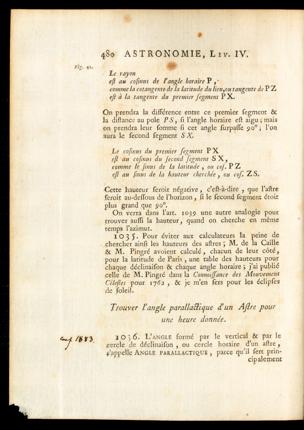 480 ASTRONOMIE, LIV. IV.
Fig. 91.
Le rayon
est au cosinus de l'angle horaire P,
comme la cotangente de la latitude du lieu, ou tangente de PZ
est à la tangente du premier segment PX.
On prendra la différence entre ce premier segment &
la distance au pole PS, si l'angle horaire est aigu; mais
on prendra leur somme si cet angle surpasse 90°, l'on
aura le second segment SX.
Le cosinus du premier segment PX
est au cosinus du second segment SX,
comme le sinus de la latitude, ou cos. PZ
est au sinus de la hauteur cherchée, ou cos. ZS.
Cette hauteur seroit négative, c'est-à-dire, que l'astre
seroit au-dessous de l'horizon, si le second segment étoit
plus grand que 90°.
On verra dans l'art. 1039 une autre analogie pour
trouver aussi la hauteur, quand on cherche en même
temps l'azimut.
1035. Pour éviter aux calculateurs la peine de
chercher ainsi les hauteurs des astres; M. de la Caille
& M. Pingré avoient calculé, chacun de leur côté,
pour la latitude de Paris, une table des hauteurs pour
chaque déclinaison & chaque angle horaire; j'ai publié
celle de M. Pingré dans la Connoissance des Mouvemens
Célestes pour 1762, & je m'en sers pour les éclipses
de soleil.
Trouver l'angle parallactique d'un Astre pour
une heure donnée.
1036. L'ANGLE formé par le vertical & par le
cercle de déclinaison, ou cercle horaire d'un astre,
s'appelle ANGLE PARALLACTIQUE, parce qu'il sert prin-
cipalement